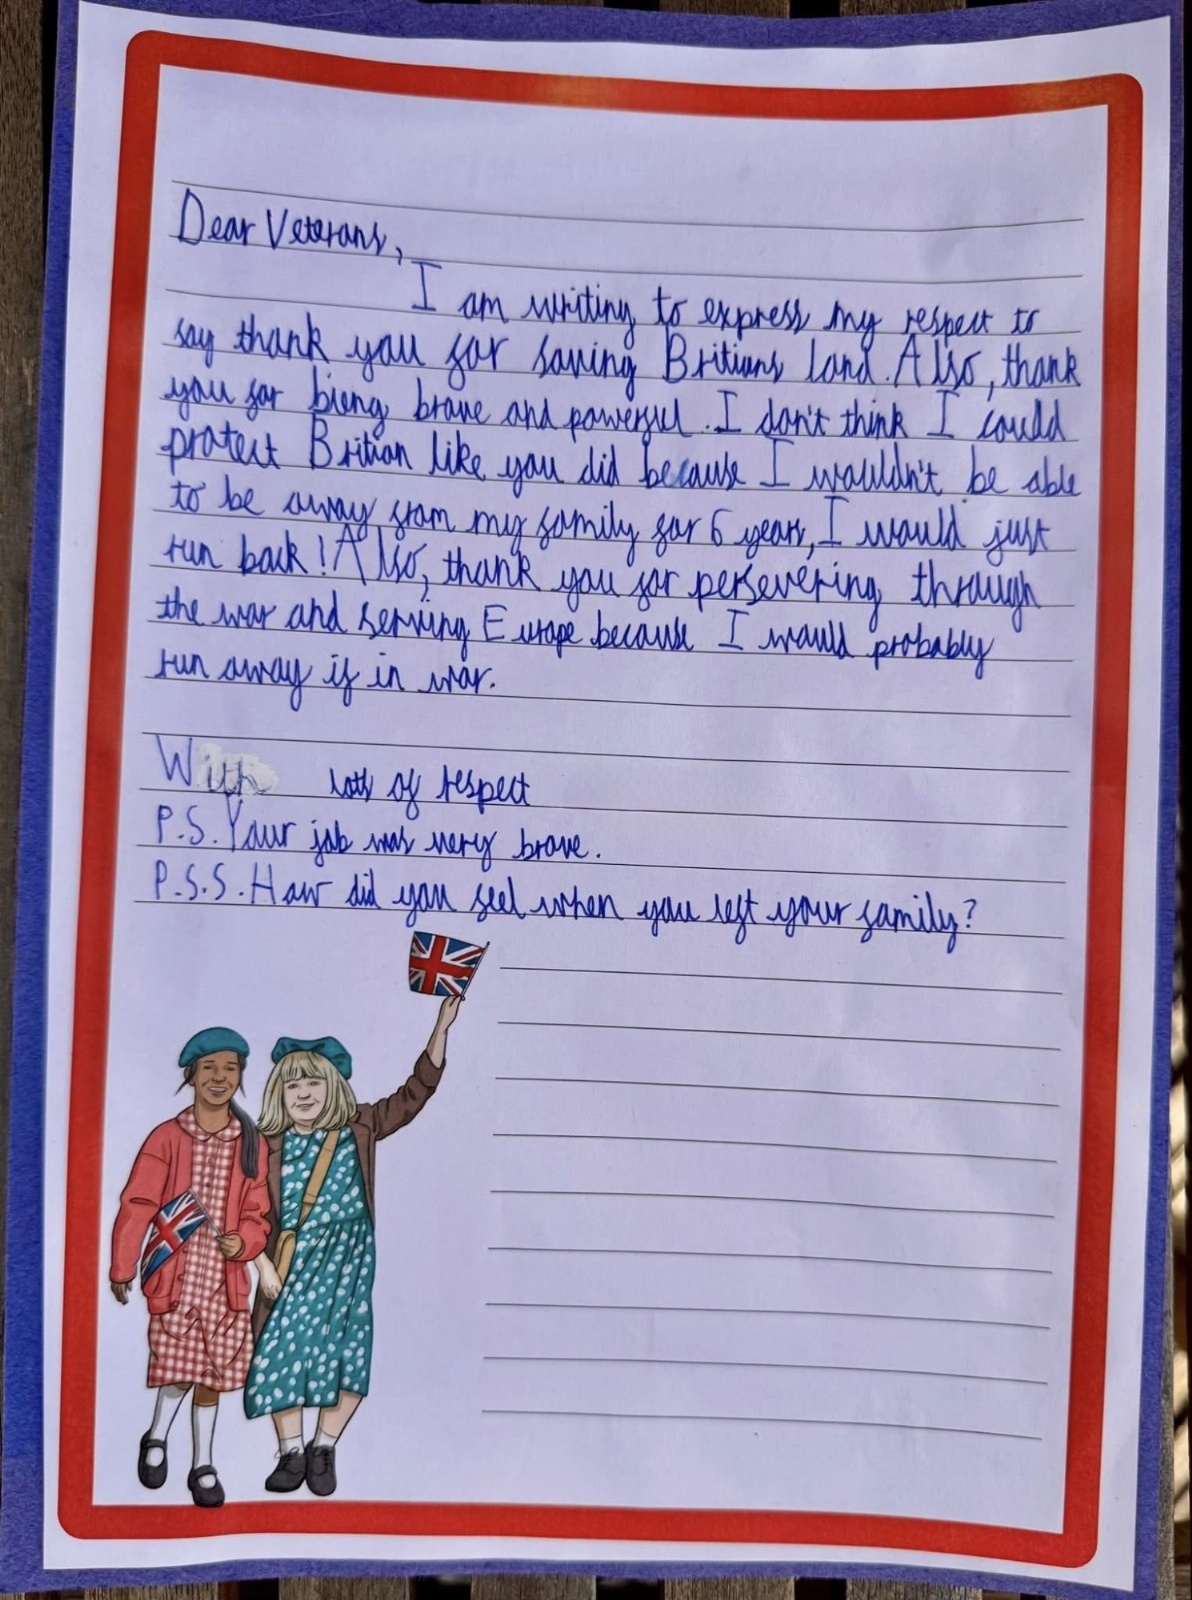 Dear Veterans,
I am writing to express my respect to
say thank you for saving Britians land. Also, thank
you for bieng brave and powerful. I don't think I could
protect Britian like you did because I wouldn't be able
to be away from my family for 6 years, I would just
run back! Also, thank you for persevering through
the war and serving Europe because I would probably
run away if in war.
With lots of respect
P.S. Your job was very brave.
P.S.S. How did you feel when you left your family?